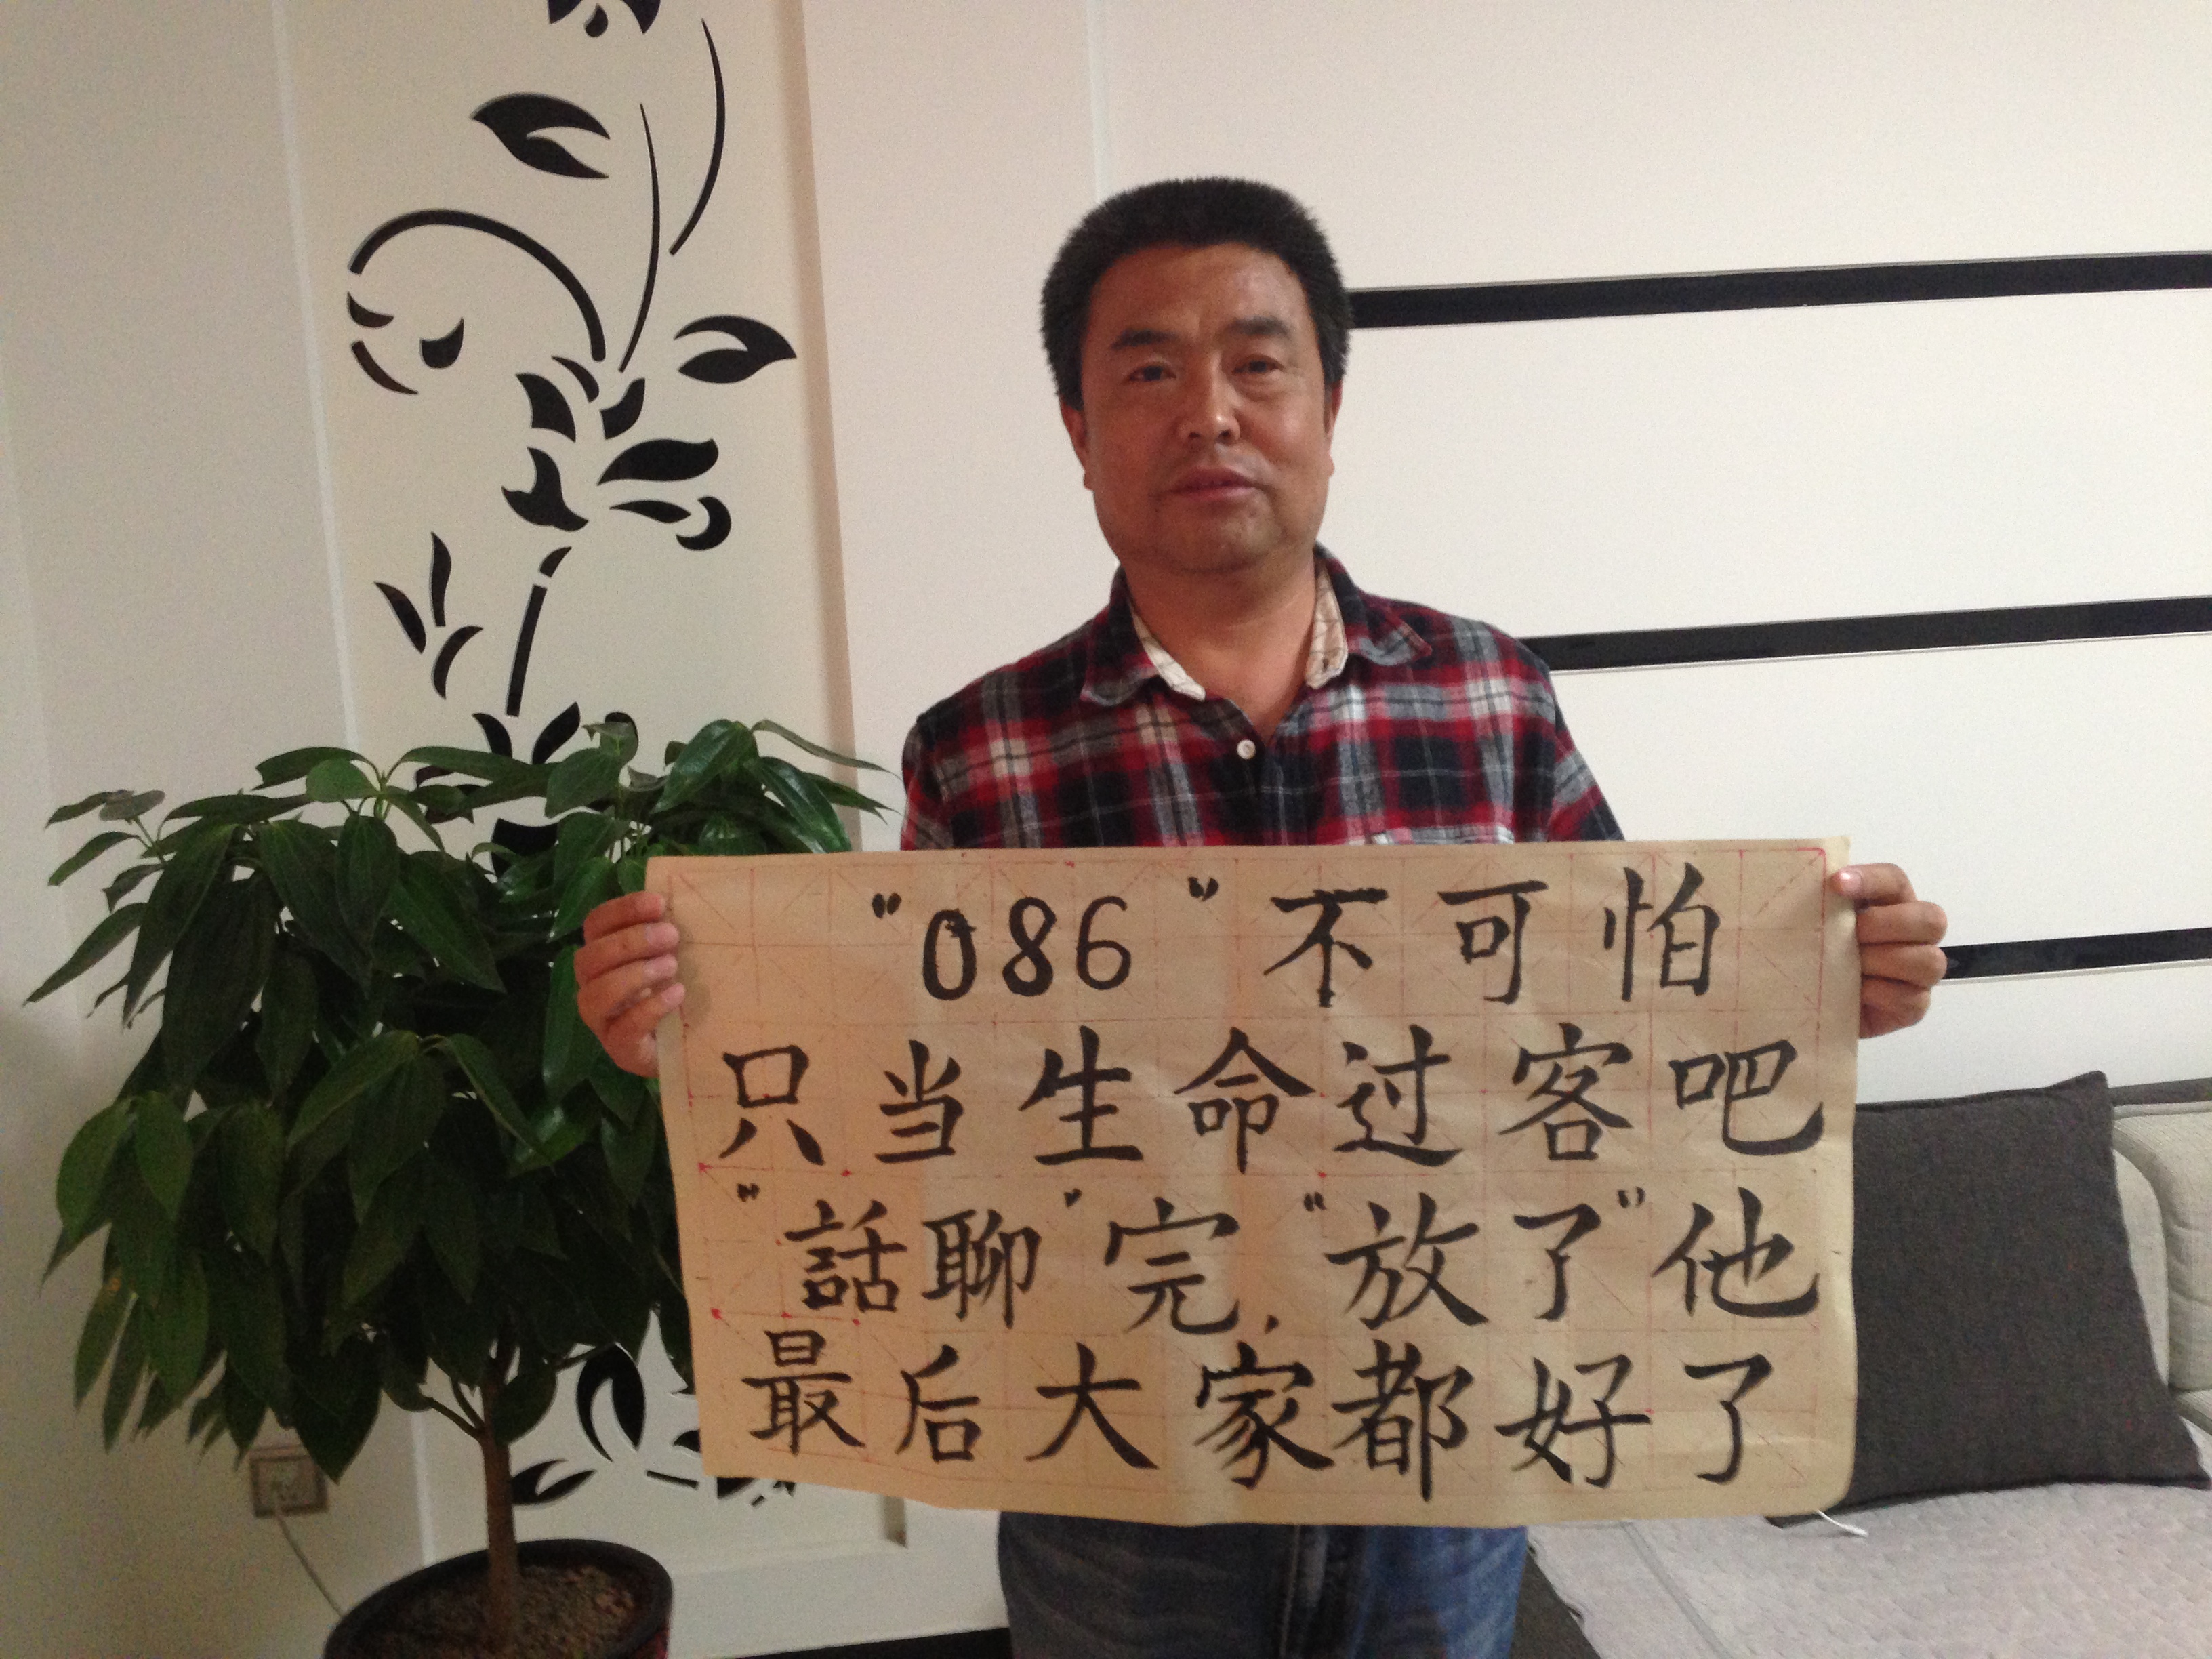 "086"不可怕
只当生命过客吧
"話聊"完,"放了"他
最后大家都好了